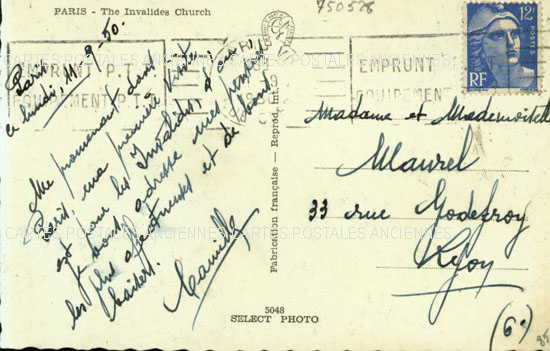 PARIS - The Invalides Church
750528
Paris
ce lundi, 11-9-50.
Me promenant dans
Paris ma première visite
est pour les Invalides d'où
je vous adresse mes pensées
les plus affectueuses et de bons
baisers.
Camille
EMPRUNT P.T.T.
EQUIPEMENT P.T.T.
EMPRUNT
EQUIPEMENT
12F
RF
Fabrication française — Reprod. Int.
Madame et Mademoiselle
Maurel
33 rue Godefroy
Lyon
(6e)
85
5048
SELECT PHOTO
CARTES POSTALES ANCIENNES CARTES POSTALES ANCIENNES